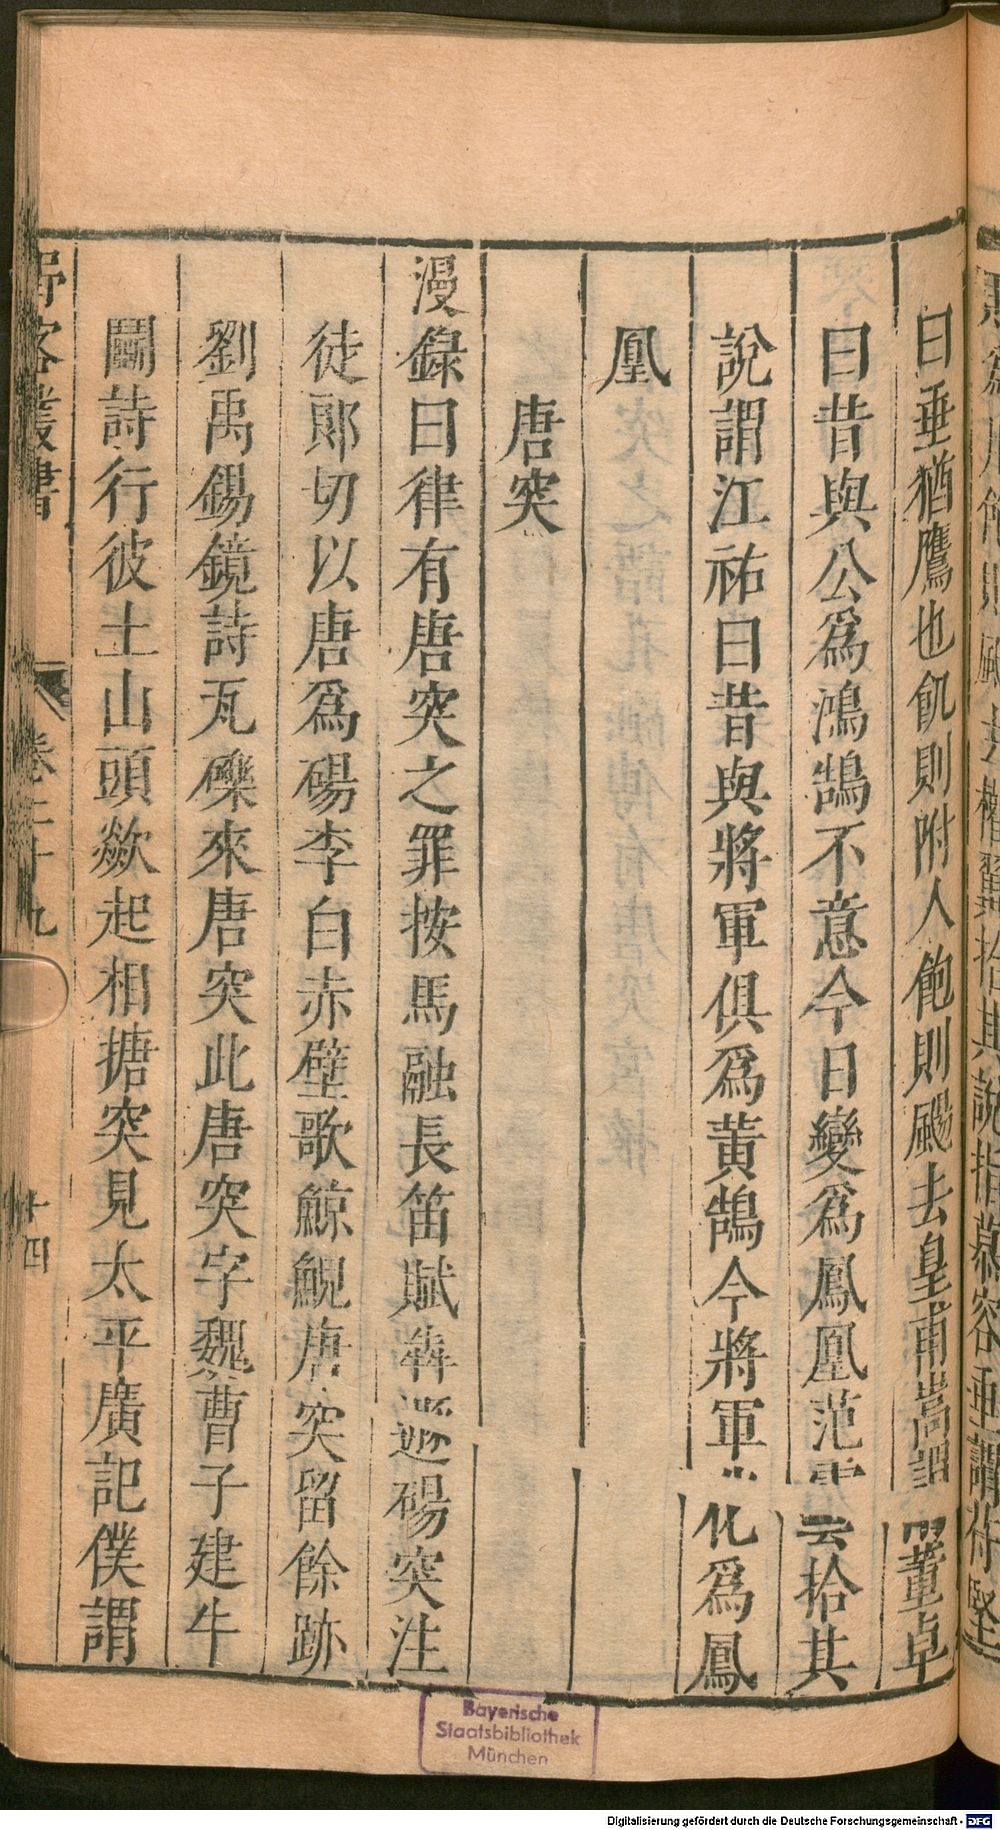 曰垂猶鷹也飢則附人飽則颺去皇甫嵩謂董卓
曰昔與公爲鴻鵠不意今日變爲鳳凰范雲拾其
說謂江祐曰昔與將軍俱爲黃鵠今將軍化爲鳳
凰
唐突
漫錄曰律有唐突之罪按馬融長笛賦犇遯碭突注
徒郞切以唐爲碭李白赤壁歌鯨鯢唐突留餘跡
劉禹錫鏡詩瓦礫來唐突此唐突字魏曹子建牛
鬬詩行彼土山頭歘起相搪突見太平廣記僕謂
野客叢書
卷二十九
十四
Bayerische
Staatsbibliothek
München
Digitalisierung gefördert durch die Deutsche Forschungsgemeinschaft - DFG